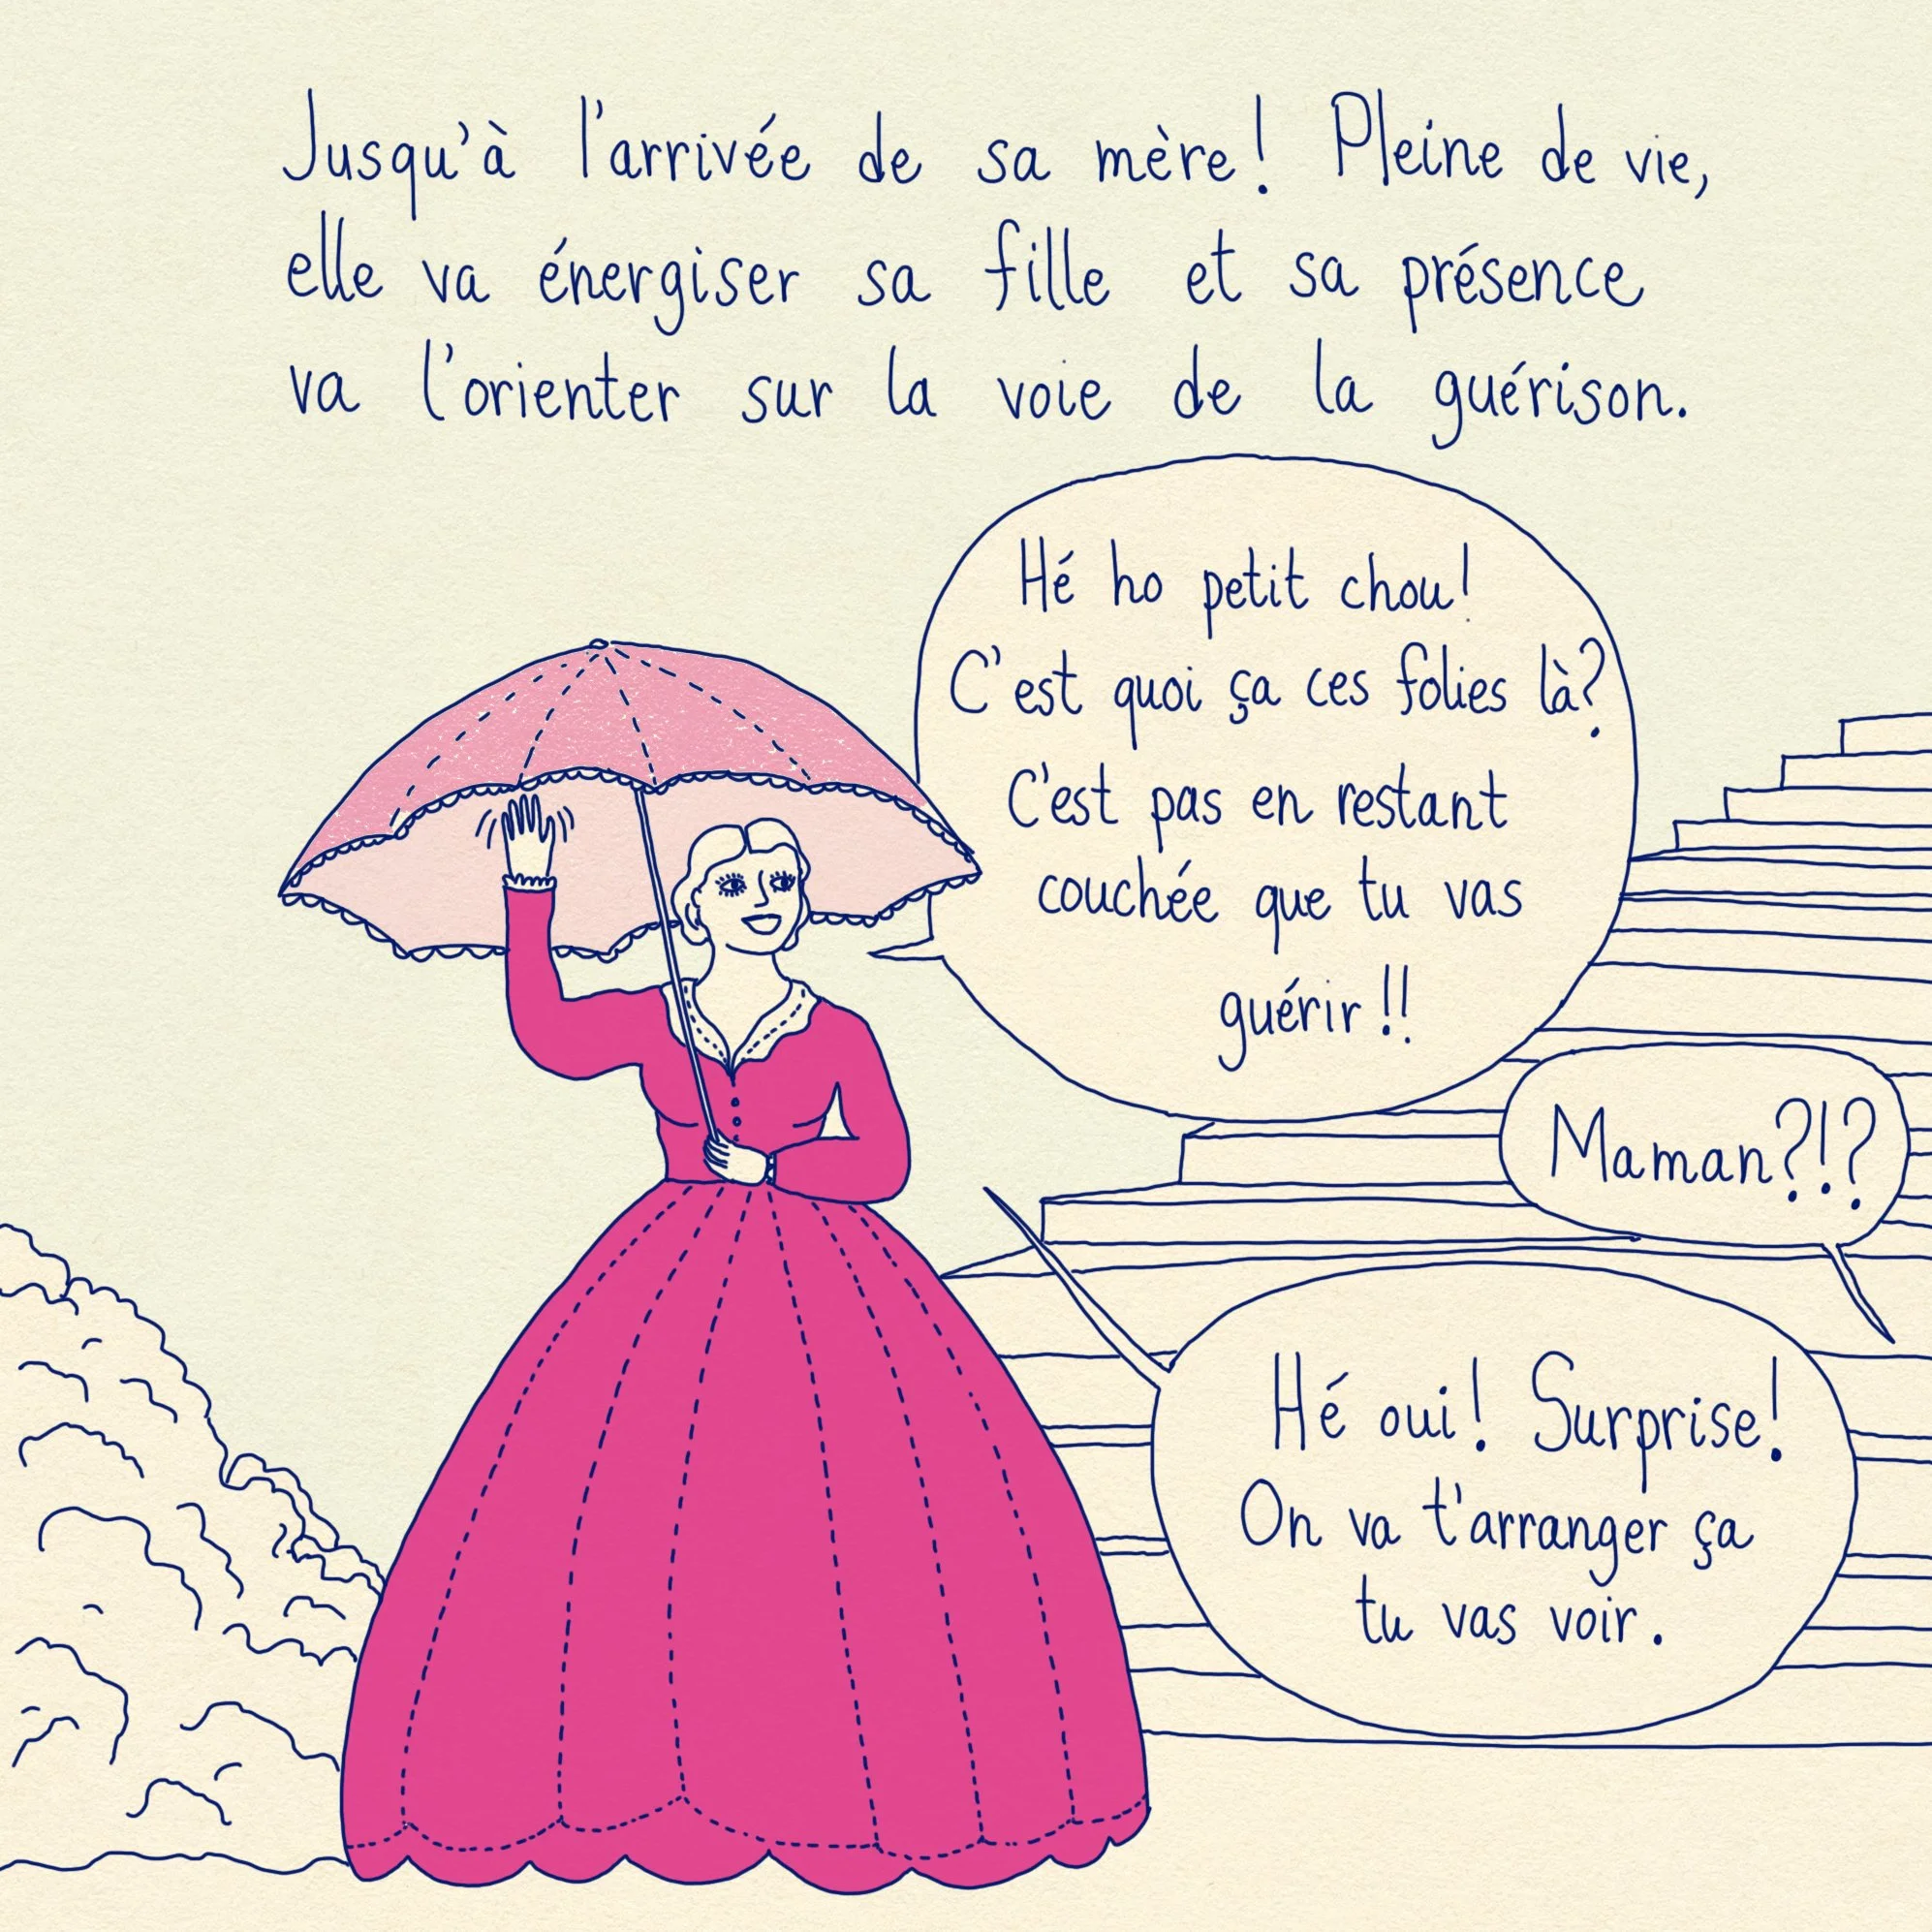 Jusqu'à l'arrivée de sa mère! Pleine de vie,
elle va énergiser sa fille et sa présence
va l'orienter sur la voie de la guérison.
Hé ho petit chou!
C'est quoi ça ces folies là?
C'est pas en restant
couchée que tu vas
guérir!!
Maman?!?
Hé oui! Surprise!
On va t'arranger ça
tu vas voir.